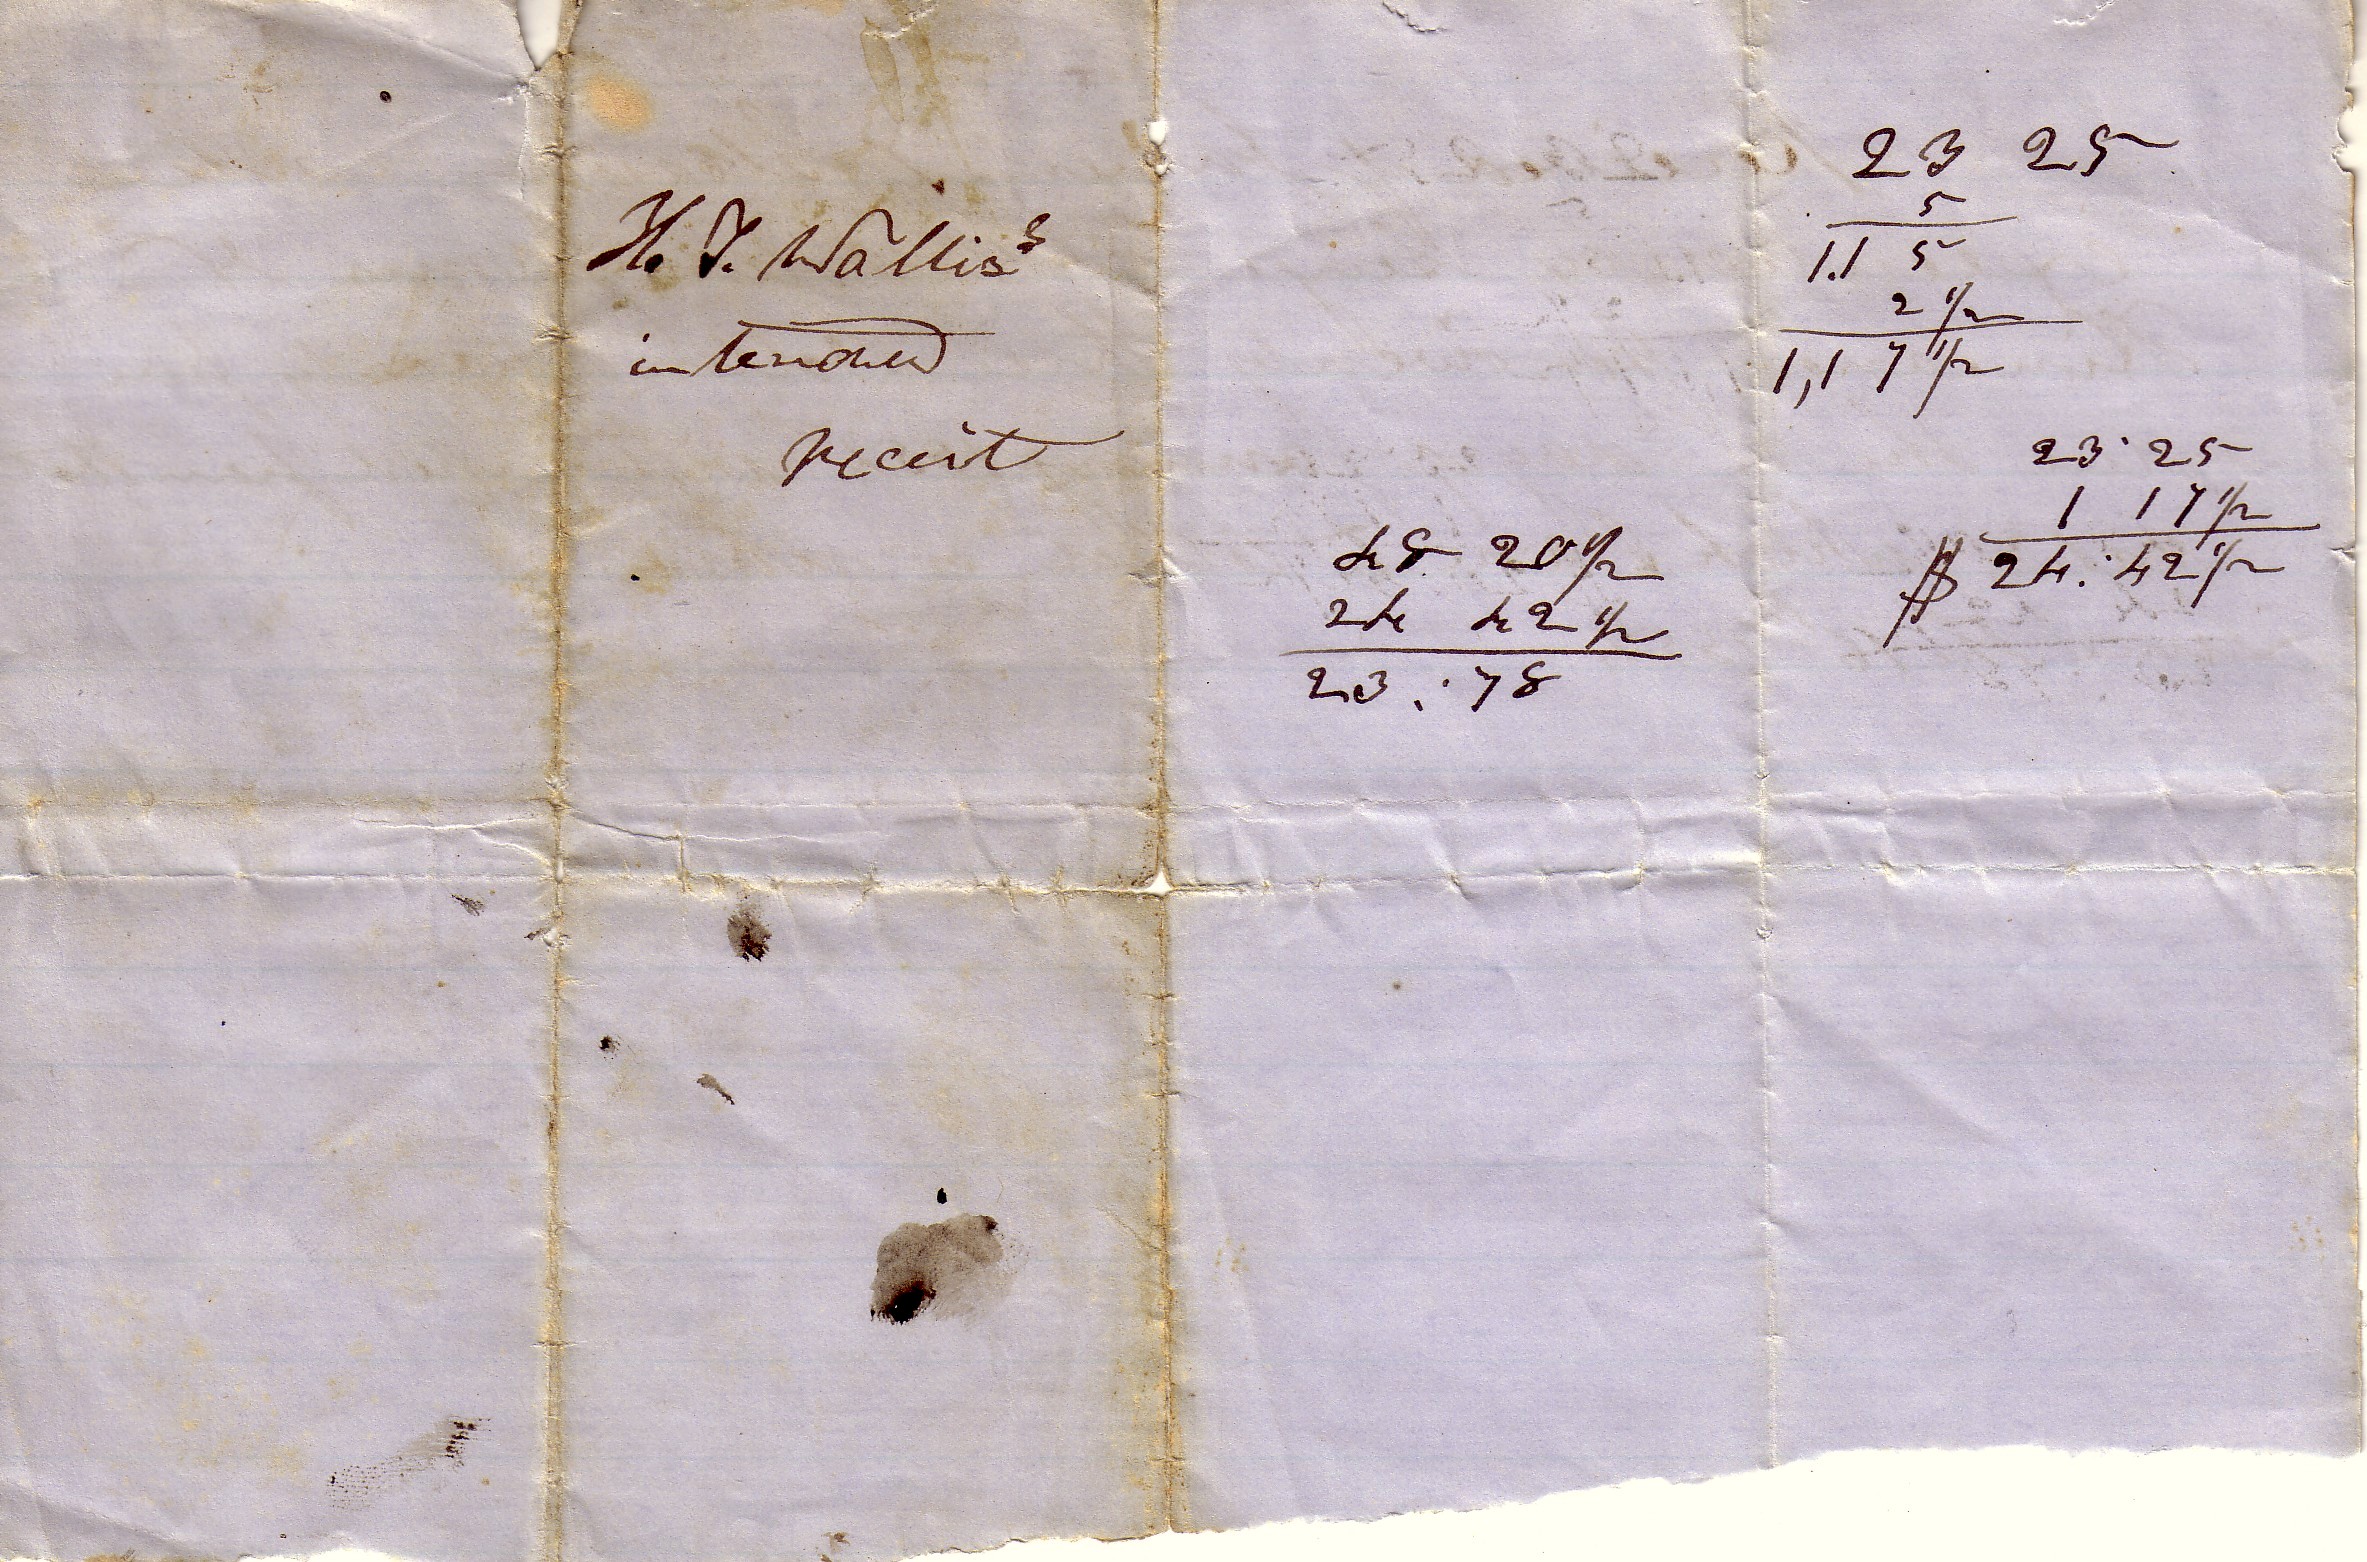 H. T. Wallis's
intended
receist
23 25
5
1.1 5
2 1/2
1,1 7 1/2
23·25
1 17 1/2
$ 24:42 1/2
48 20 1/2
24 42 1/2
23:78